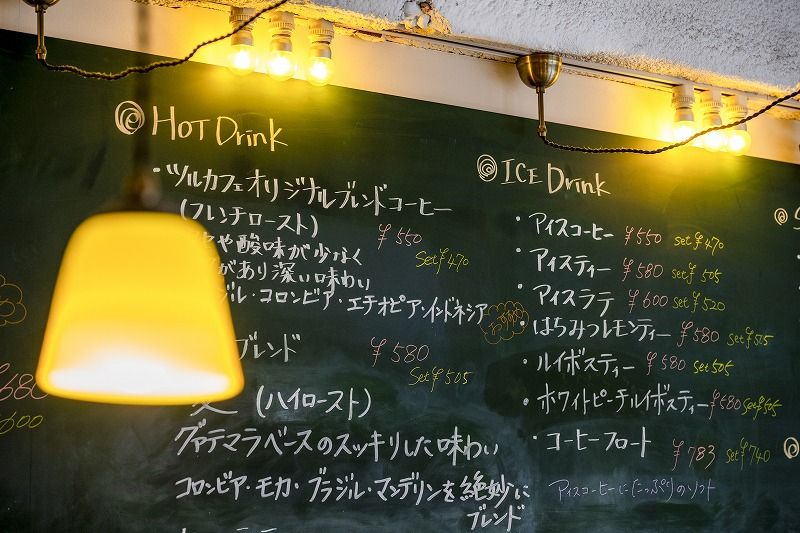 HOT Drink
・ツルカフェオリジナルブレンドコーヒー
(フルチロースト)
¥550
や酸味が少なく
set¥470
があり深い味わい
ジル・コロンビア・エチオピア・インドネシア
おすすめ
ブレンド
¥580
set¥505
(ハイロースト)
グァテマラベースのスッキリした味わい
コロンビア・モカ・ブラジル・マンデリンを絶妙に
ブレンド
¥680
¥600
ICE Drink
・アイスコーヒー ¥550 set¥470
・アイスティー ¥580 set¥505
・アイスラテ ¥600 set¥520
・はちみつレモンティー ¥580 set¥505
・ルイボスティー ¥580 set505
・ホワイトピーチルイボスティー ¥580 set¥505
・コーヒーフロート ¥783 set¥740
アイスコーヒーに(たっぷり)のソフト